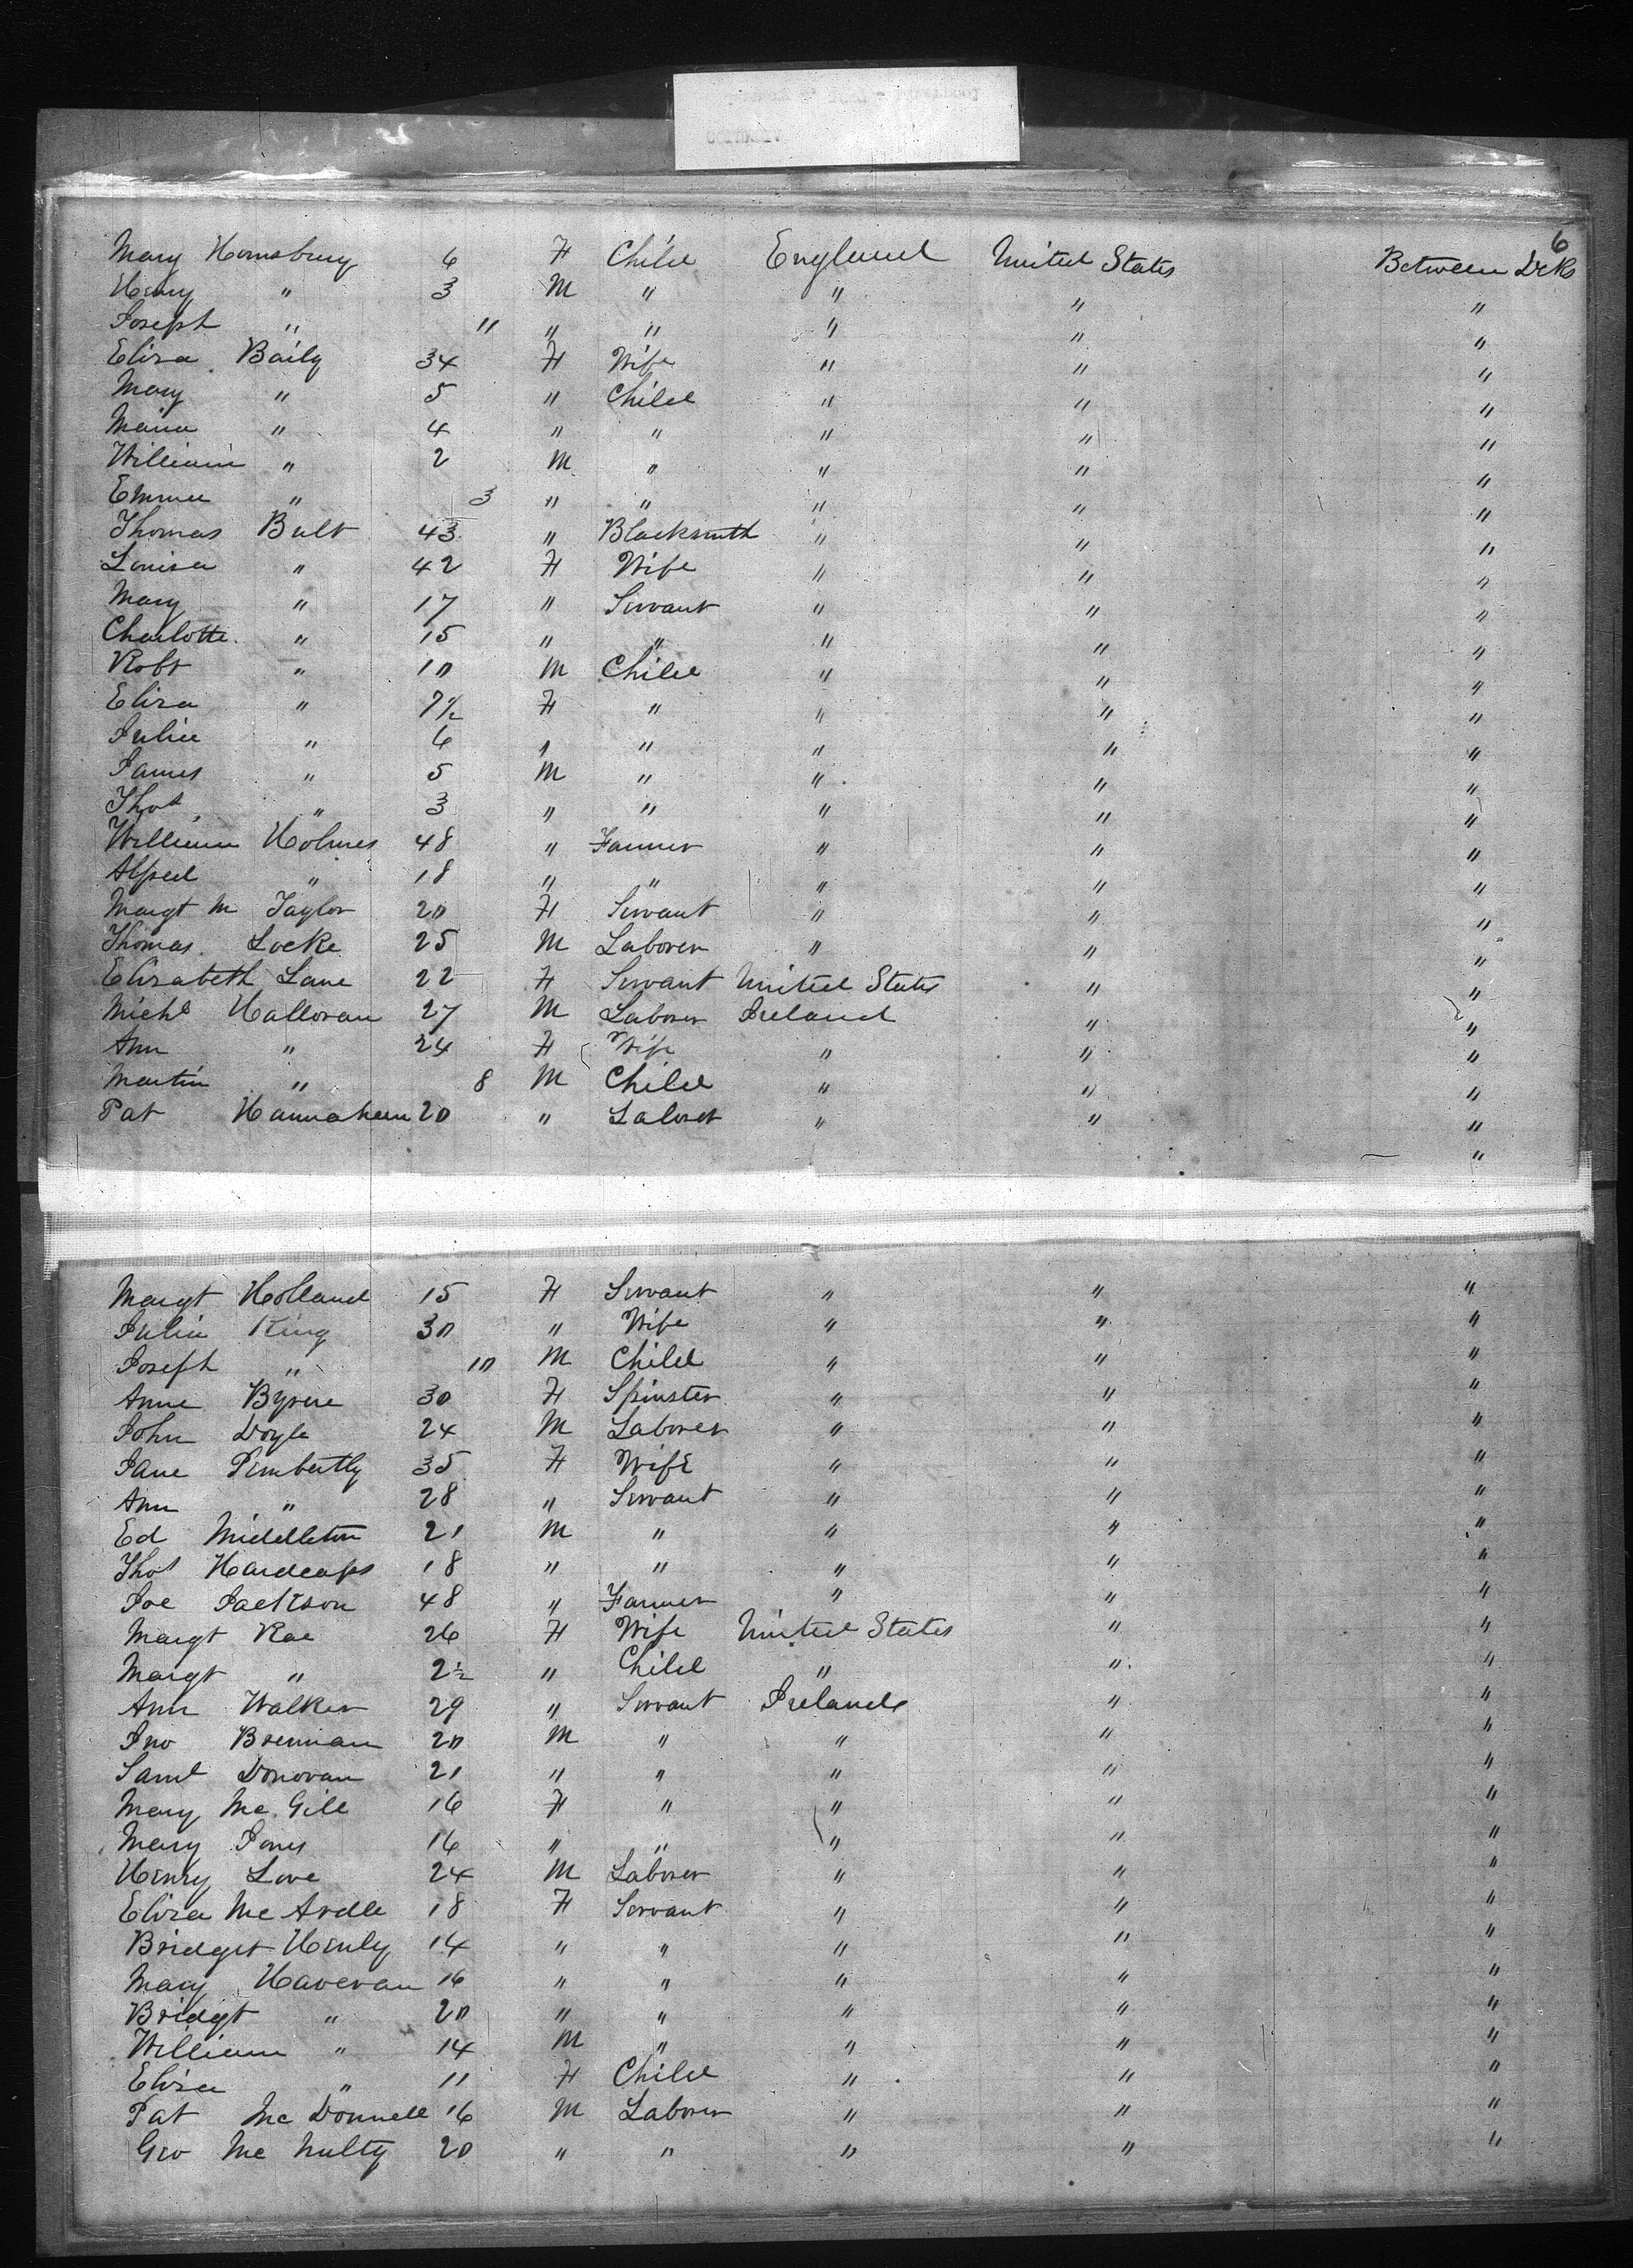 6
Mary Hornsbury 6 F Child England United States Between Deks
Henry " 3 M " " " "
Joseph " 11 " " " " "
Eliza Baily 34 F Wife " " "
Mary " 5 " Child " " "
Maria " 4 " " " " "
William " 2 M " " " "
Emma " 3 " " " " "
Thomas Bult 43 " Blacksmith " " "
Louisa " 42 F Wife " " "
Mary " 17 " Servant " " "
Charlotte " 15 " " " " "
Robt " 10 M Child " " "
Eliza " 7½ F " " " "
Julia " 6 " " " " "
James " 5 M " " " "
Thos " 3 " " " " "
William Holmes 48 " Farmer " " "
Alfred " 18 " " " " "
Margt M Taylor 20 F Servant " " "
Thomas Locke 25 M Laborer " " "
Elizabeth Lane 22 F Servant United States " "
Michl Halloran 27 M Laborer Ireland " "
Ann " 24 F Wife " " "
Martin " 8 M Child " " "
Pat 20 " Laborer " " "
"
Margt Holland 15 F Servant " " "
Julia King 30 " Wife " " "
Joseph " 10 M Child " " "
Anne Byrne 30 F Spinster " " "
John Doyle 24 M Laborer " " "
Jane Pimbertly 35 F Wife " " "
Ann " 28 " Servant " " "
Ed Middleton 21 M " " " "
Thos 18 " " " " "
Joe Jackson 48 " Farmer " " "
Margt Rae 26 F Wife United States " "
Margt " 2½ " Child " " "
Ann Walker 29 " Servant Ireland " "
Jno Brennan 20 M " " " "
Saml Donovan 21 " " " " "
Mary Mc Gill 16 F " " " "
Mary Jones 16 " " " " "
Henry Love 24 M Laborer " " "
Eliza Mc Ardle 18 F Servant " " "
Bridget Henly 14 " " " " "
Mary Haveran 16 " " " " "
Bridgt " 20 " " " " "
William " 14 M " " " "
Eliza " 11 F Child " " "
Pat Mc Donnell 16 M Laborer " " "
Geo Mc Nulty 20 " " " " "